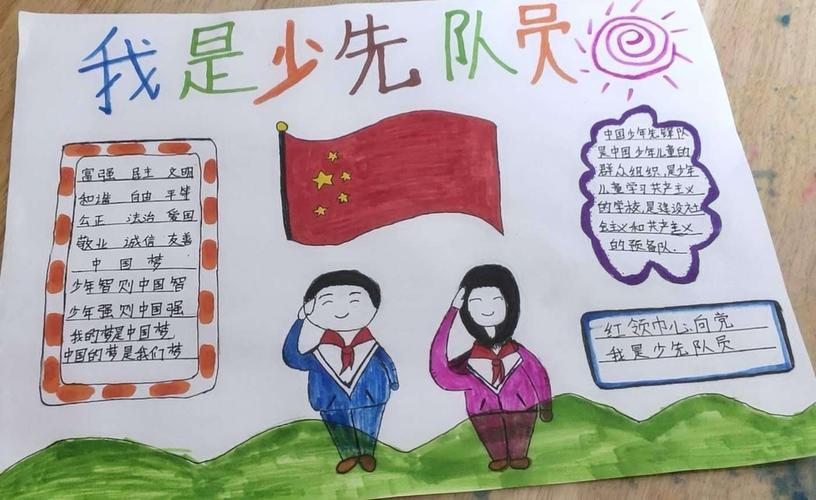 我是少先队员
富强 民主 文明
和谐 自由 平等
公正 法治 爱国
敬业 诚信 友善
中国梦
少年智则中国智
少年强则中国强
我的梦是中国梦,
中国的梦是我们梦
中国少年先锋队
是中国少年儿童的
群众组织,是少年
儿童学习共产主义
的学校,是建设社
会主义和共产主义
的预备队.
红领巾心向党
我是少先队员